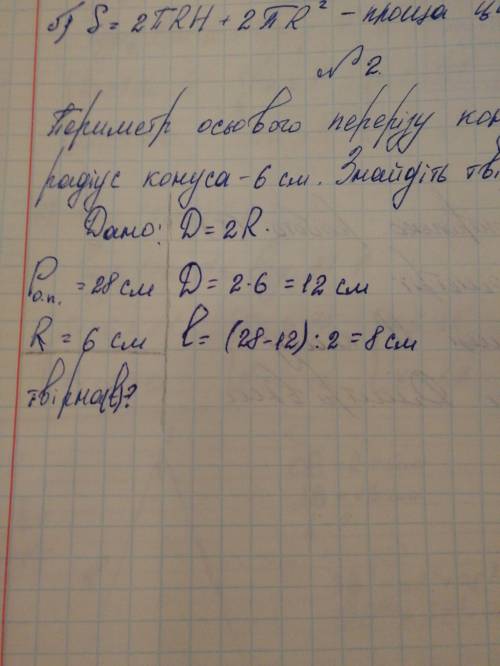 б) S = 2πRH + 2πR² - площа
№ 2.
Периметр осьового перерізу
радіус конуса - 6 см. Знайдіть
Дано: D = 2R.
Pо.п. = 28 см D = 2·6 = 12 см
R = 6 см l = (28-12) : 2 = 8 см
твірна(l)?